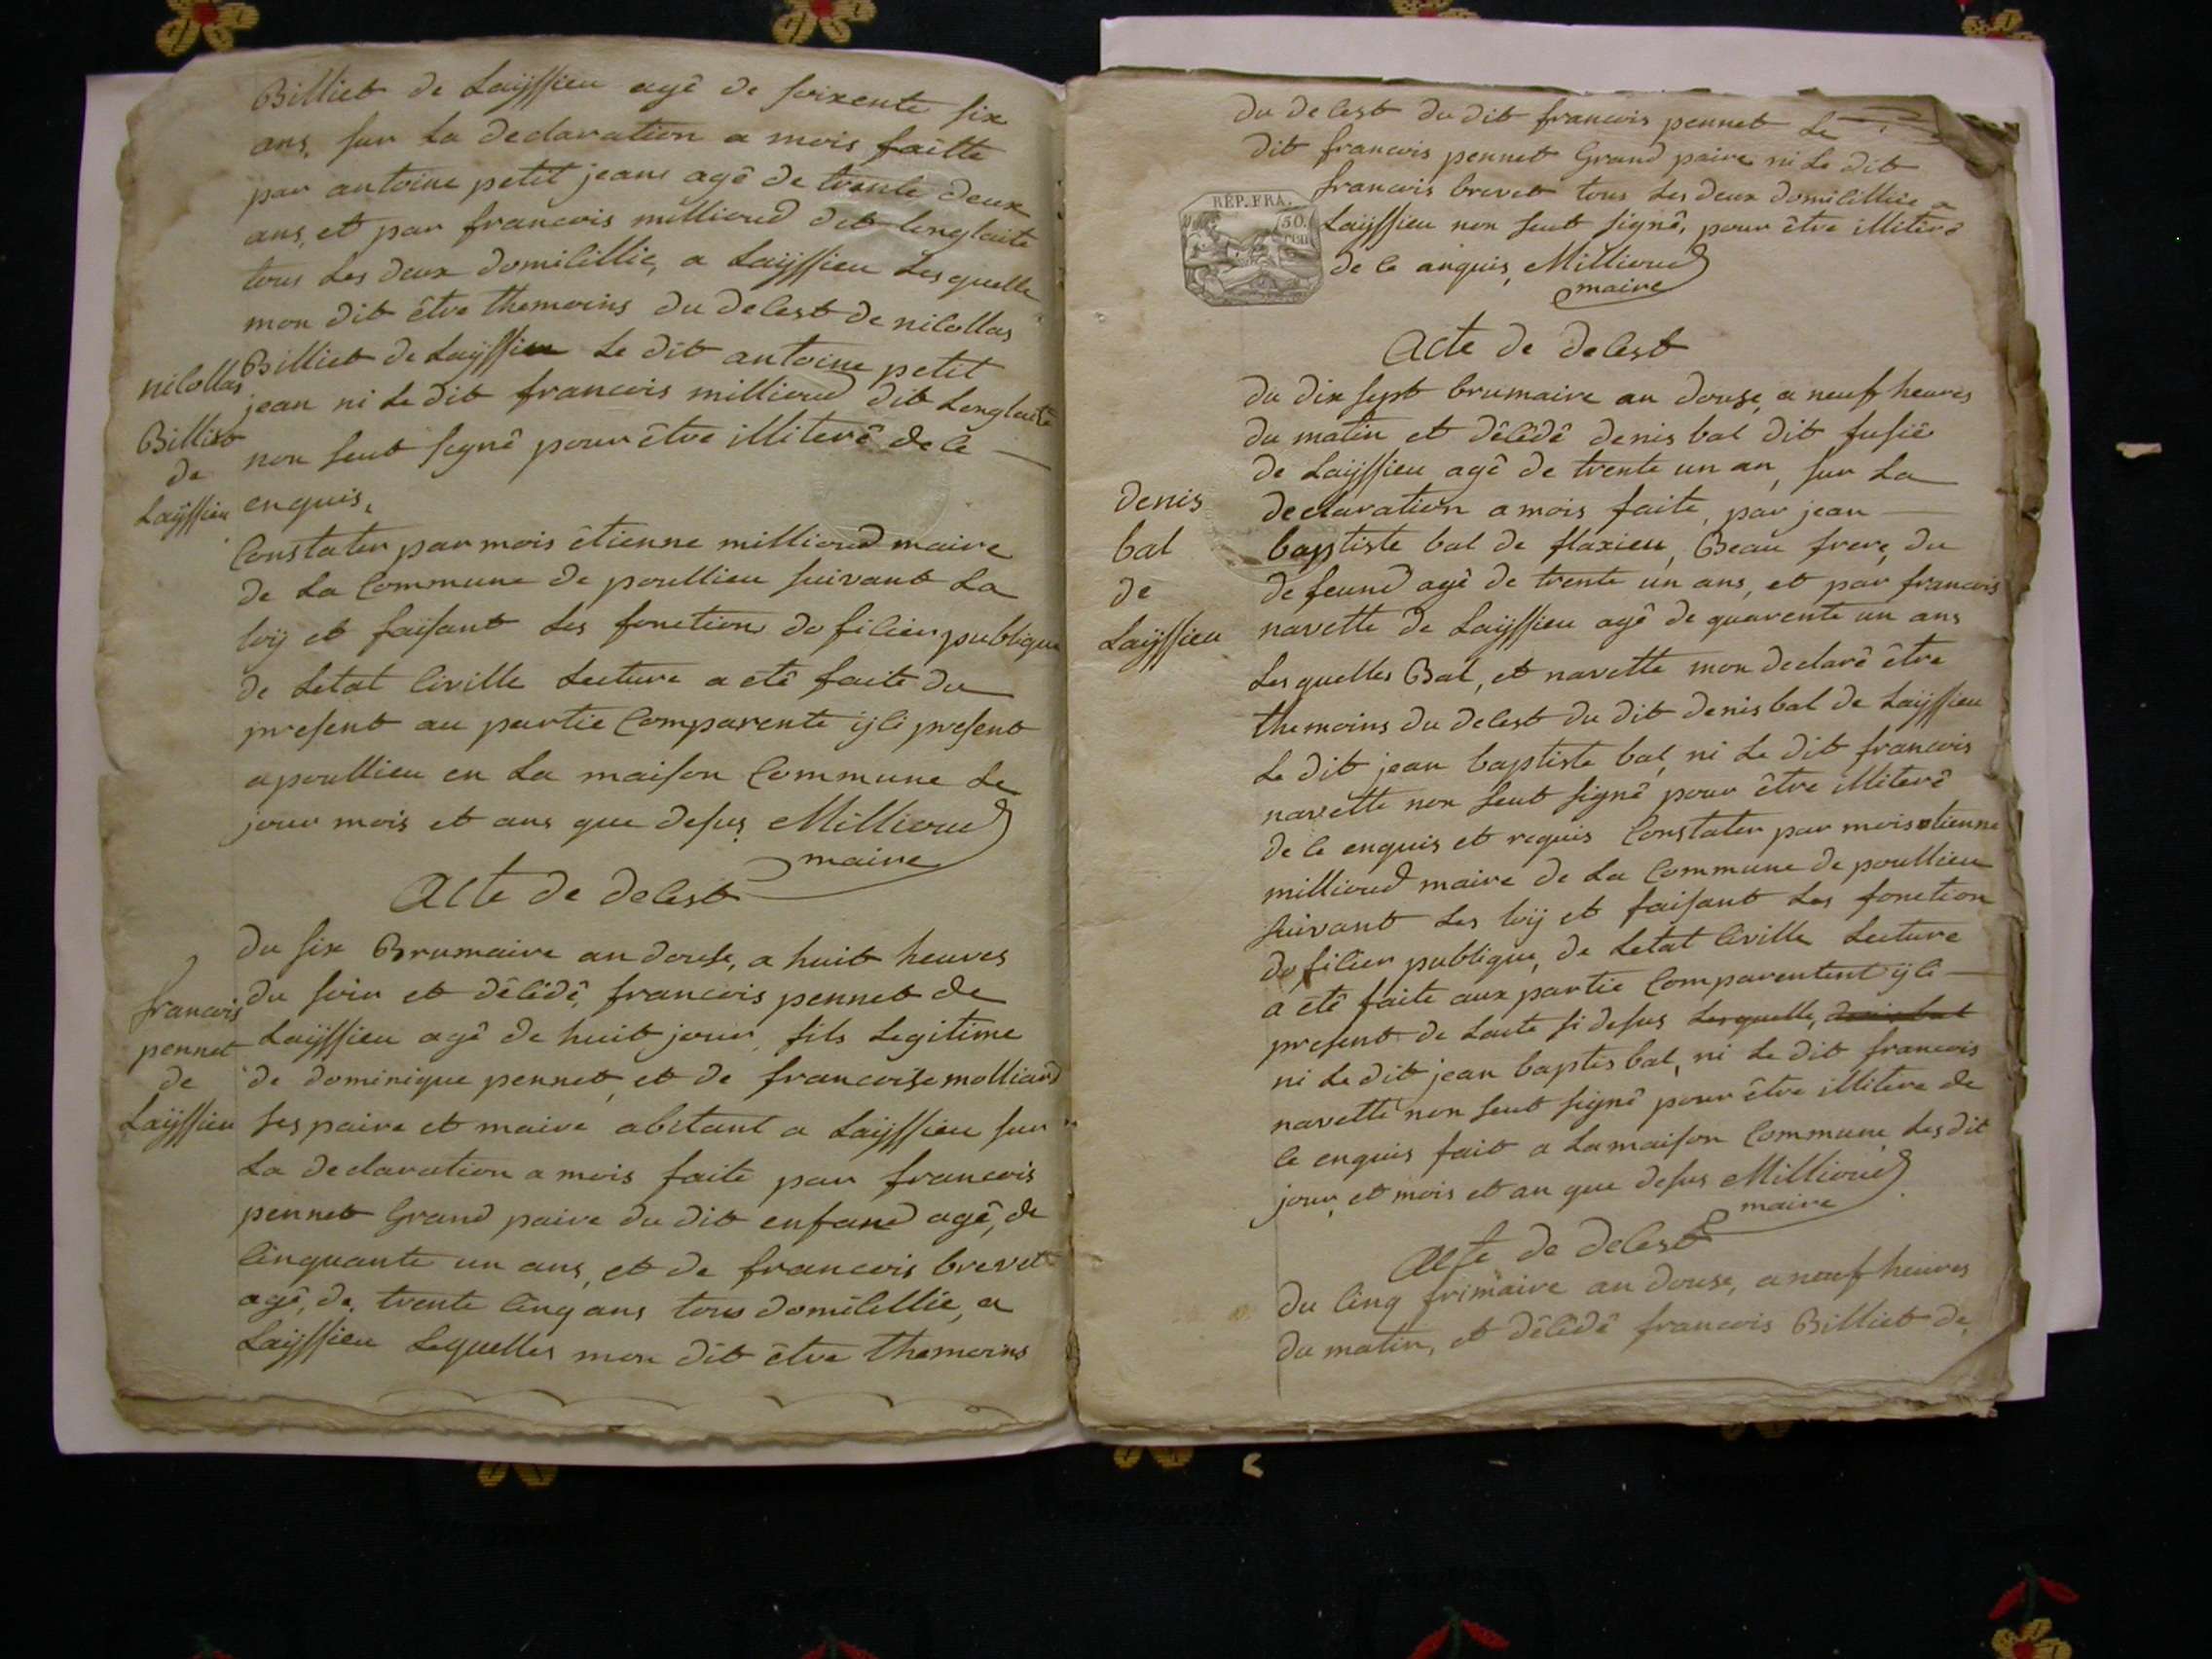 Billiet de Laÿssieu agê de soixente six
ans, sur La declaration a mois faitte
par antoine petit jeans agê de trente deux
ans, et par francois millioud dit Lenglaite
tous Les deux domicillie, a Laÿssieu Lesquelle
mon dit être themoins du decest de nicollas
Billiet de Laÿssieu Le dit antoine petit
jean ni Le dit francois millioud dit Lenglaite
non seut signê pour être illiterê de ce
enquis,
nicollas
Billiet
de
Laÿssieu
Constater par mois êtienne millioud maire
de La Commune de poullieu suivant La
loÿ et faisant Les fonction do ficier publique
de Letat Civille Lecture a etê faite du
present au partie Comparente ÿci present
a poullieu en La maison Commune Le
jour mois et ans que desus Millioud
maire
Acte de decest
du six Brumaire an douse, a huit heures
du soir et dêcêdê, francois pennet de
Laÿssieu agê de huit jour, fils Legitime
de dominique pennet, et de francoise molliard
ses paire et maire abitant a Laÿssieu sur
La declaration a mois faite par francois
pennet Grand paire du dit enfand agê, de
Cinquante un ans, et de francois brevet
agê, de, trente Cinq ans tous domicillie, a
Laÿssieu Lequelles mon dit être themoins
francois
pennet
de
Laÿssieu
du decest du dit francois pennet Le
dit francois pennet Grand paire ni Le dit
francois brevet tous Les deux domicillie a
Laÿssieu non seut signê, pour être illiterê
de ce anquis, Millioud
maire
RÉP. FRA.
50.
CEN
Acte de decest
du dix sept brumaire an douse, a neuf heures
du matin et dêcêdê denis bal dit fusiê
de Laÿssieu agê de trente un an, sur La
declaration a mois faite, par jean
baptiste bal de flaxieu, Beau frere, du
defeund agê de trente un ans, et par francois
navette de Laÿssieu agê de quarente un ans
Lesquelles Bal, et navette mon declarê être
themoins du decest du dit denis bal de Laÿssieu
Le dit jean baptiste bal, ni Le dit francois
navette non seut signê pour être illiterê
de ce enquis et requis Constater par mois etienne
millioud maire de La Commune de poullieu
suivant Les loÿ et faisant Les fonction
do, ficier publique, de Letat Civille Lecture
a etê faite aux partie Comparentent ÿci
present de Lacte si desus Lesquelle,
ni Le dit jean baptis bal, ni Le dit francois
navette non seut signê pour être illitere de
ce enquis fait a La maison Commune Les dit
jour, et mois et an que desus Millioud
maire
denis
bal
de
Laÿssieu
Acte de decest
du Cinq frimaire an douse, a neuf heures
du matin, et dêcêdê francois Billiet de,